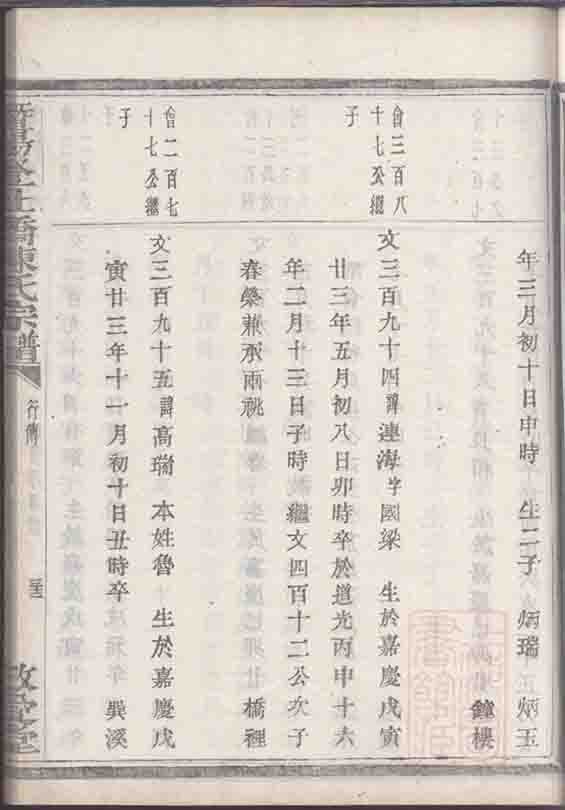 年三月初十日申時　生二子　炳瑞　炳玉
鐘樓
會三百八
十七公繼
子
文三百九十四諱連海字國梁　生於嘉慶戊寅
廿三年五月初八日卯時卒於道光丙申十六
年二月十三日子時繼文四百十二公次子
春榮兼承兩祧　橋裡
會二百七
十七公繼
子
文三百九十五諱高瑞　本姓魯　生於嘉慶戊
寅廿三年十一月初十日丑時卒　巽溪
橋陳氏宗譜
行傳